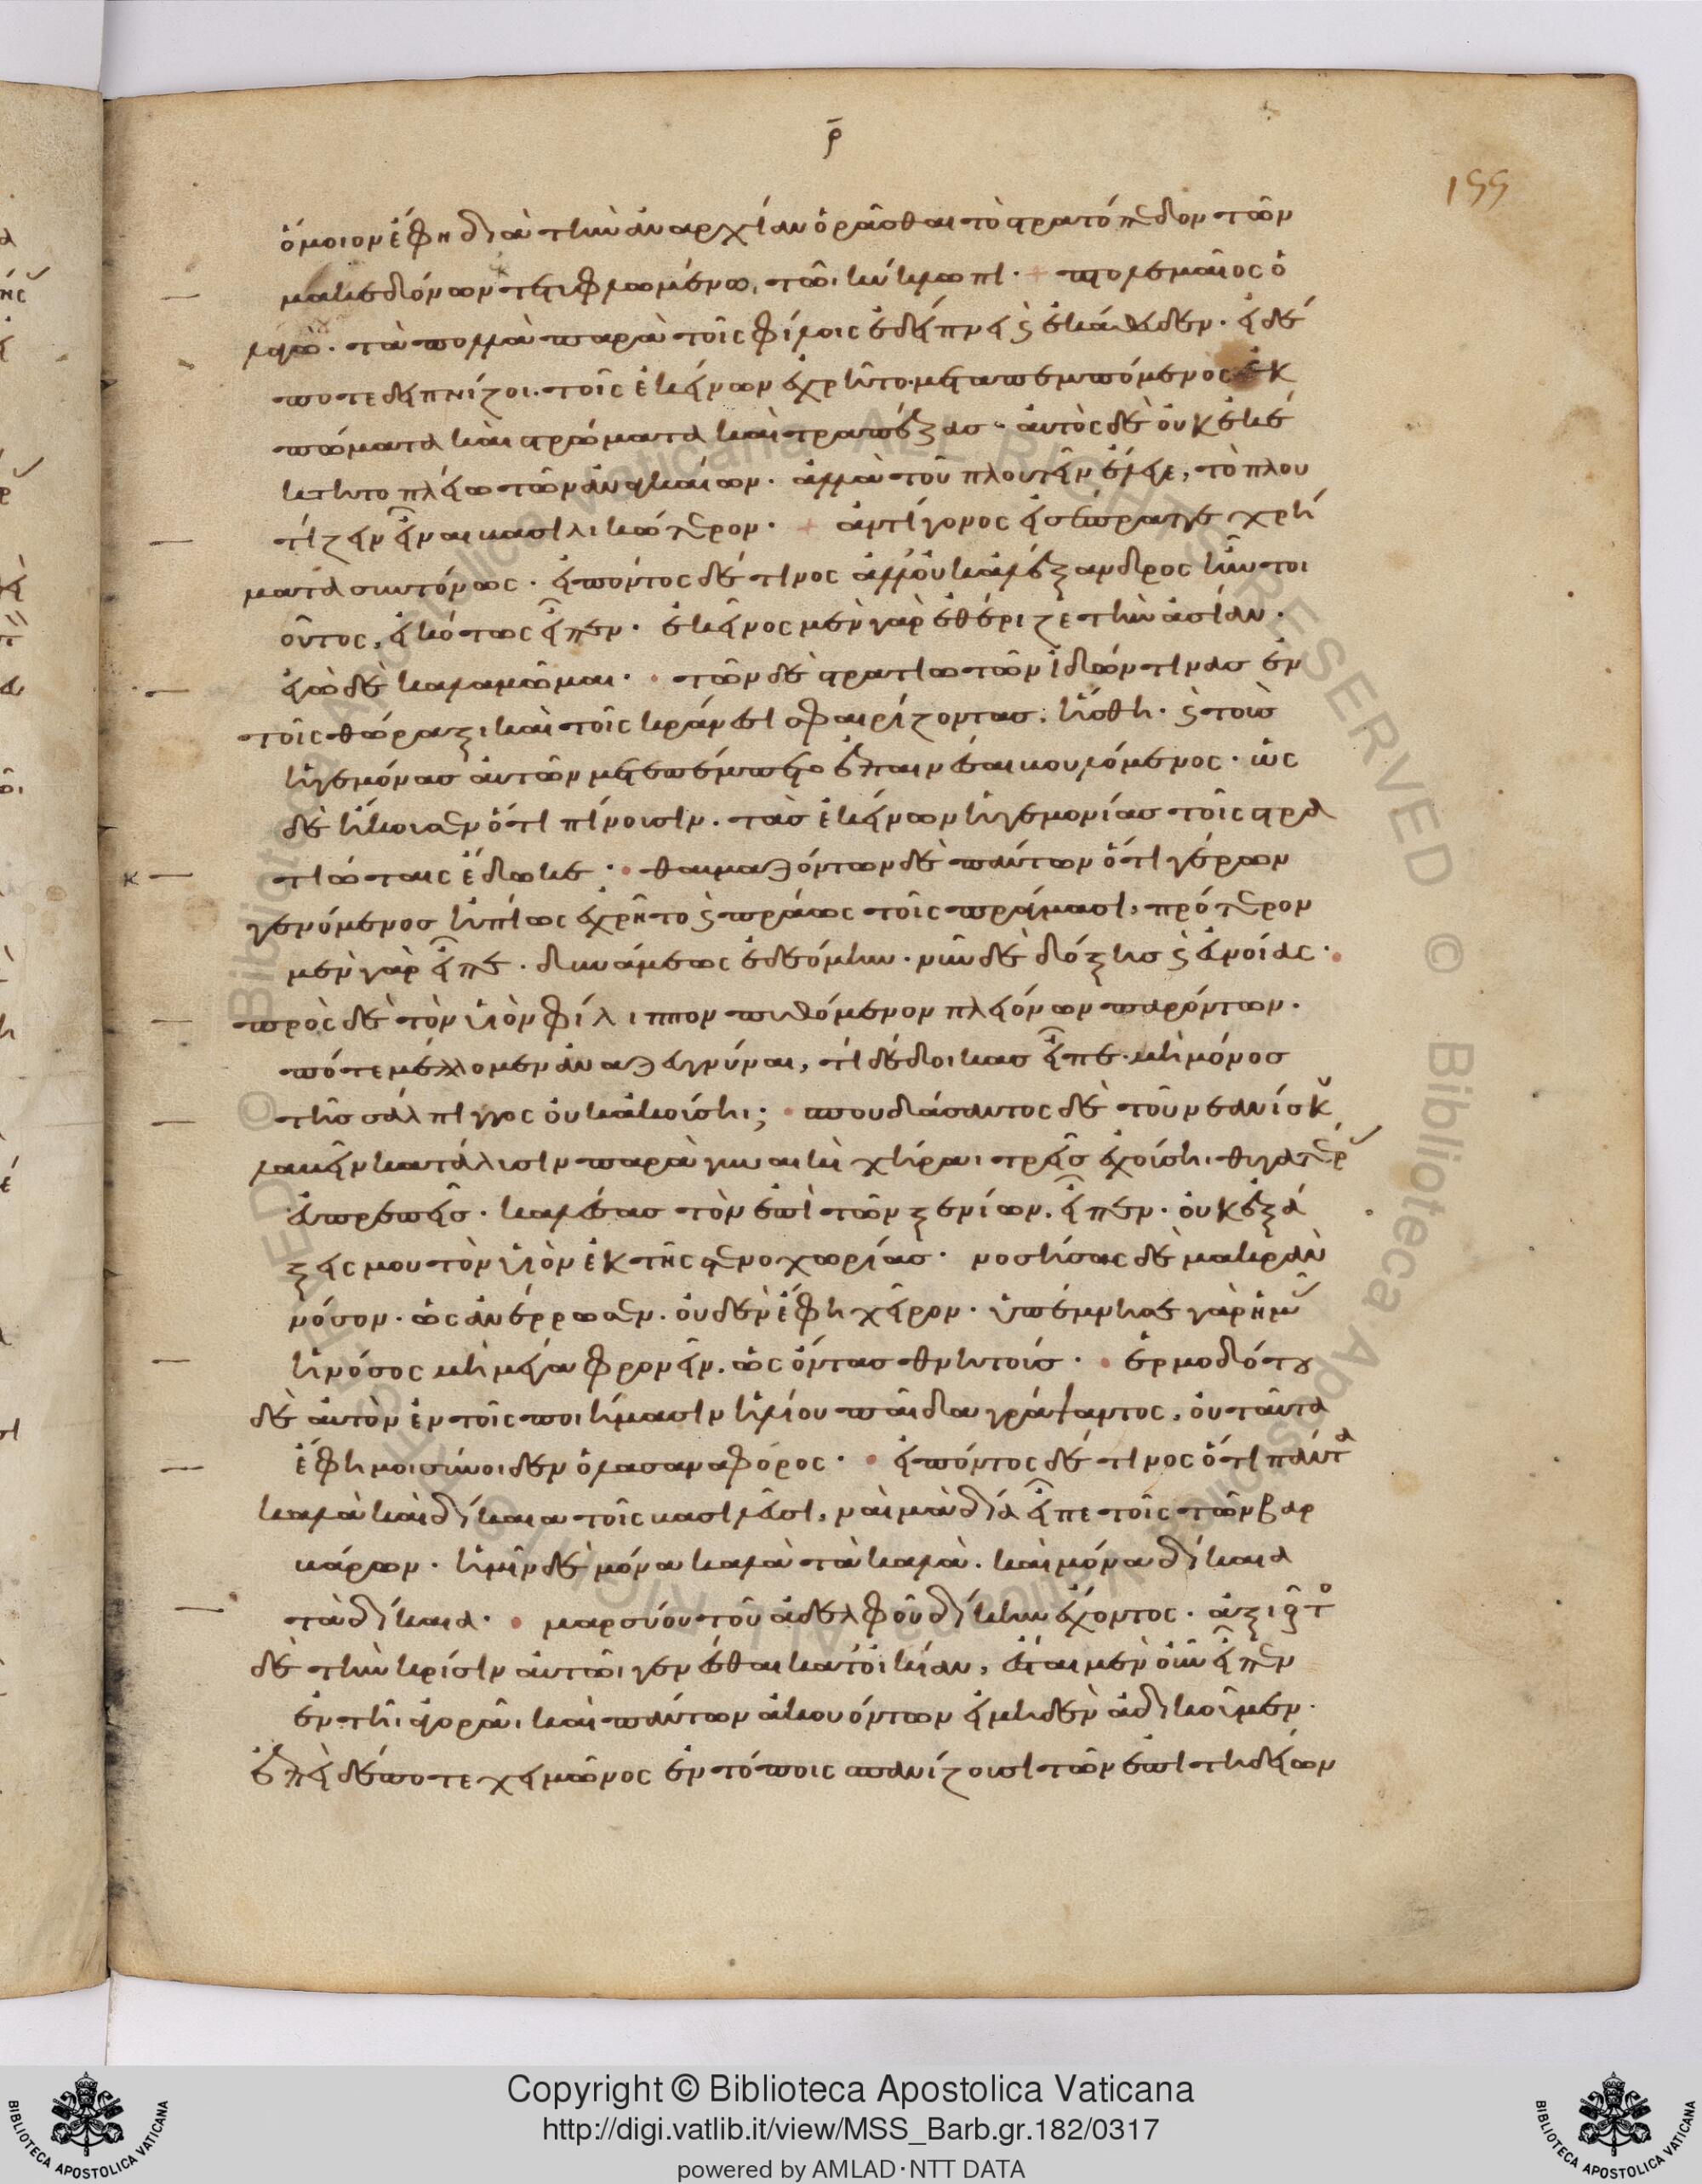 ρ̅
155
ὅμοιον ἔφη διὰ τὴν ἀναρχίαν ὁρᾶσθαι τὸ στρατόπεδον τῶν
μακεδόνων ἐκτετυφλωμένω, τῶι κύκλωπι. + πτολεμαῖος ὁ
λάγου. τὰ πολλὰ παρὰ τοῖς φίλοις ἐδείπνει καὶ ἐκάθευδεν. εἰ δέ
ποτε δειπνίζοι. τοῖς ἐκείνων ἐχρῆτο. μεταπεμπόμενος ἐκ
πώματα καὶ στρώματα καὶ τραπέζας. αὐτὸς δὲ οὐκ ἐκέ
κτητο πλείω τῶν ἀναγκαίων. ἀλλὰ τοῦ πλουτεῖν ἔλεγε, τὸ πλου
τίζειν εἶναι βασιλικώτερον. + ἀντίγονος εἰσέπραττε χρή
ματα συντόνως. εἰπόντος δέ τινος ἀλλ' οὐκ ἀλέξανδρος ἦν τοι
οῦτος, εἰκότως εἶπεν. ἐκεῖνος μὲν γὰρ ἐθέριζε τὴν ἀσίαν.
ἐγὼ δὲ καλαμῶμαι. τῶν δὲ στρατιωτῶν ἰδών τινας ἐν
τοῖς θώραξι καὶ τοῖς κράνεσι σφαιρίζοντας, ἥσθη. καὶ τοὺς
ἡγεμόνας αὐτῶν μετεπέμπετο ἐπαινέσαι βουλόμενος. ὡς
δὲ ἤκουσεν ὅτι πίνουσιν. τὰς ἐκείνων ἡγεμονίας τοῖς στρα
τιώταις ἔδωκε. θαυμαζόντων δὲ πάντων ὅτι γέρων
γενόμενος ἠπίως ἐχρῆτο καὶ πράως τοῖς πράγμασι, πρότερον
μὲν γὰρ εἶπε. δυνάμεως ἐδεόμην. νῦν δὲ δόξης καὶ εὐνοίας.
πρὸς δὲ τὸν υἱὸν φίλιππον πυθόμενον πλειόνων παρόντων.
πότε μέλλομεν ἀναζευγνύναι, τί δέδοικας εἶπε. μὴ μόνος
τῆς σάλπιγγος οὐκ ἀκούσηι; σπουδάσαντος δὲ τοῦ νεανίσκου
λαβεῖν κατάλυσιν παρὰ γυναικὶ χήραι τρεῖς ἐχούσηι θυγατέρας
εὐπρεπεῖς. καλέσας τὸν ἐπὶ τῶν ξενίων. εἶπεν. οὐκ ἐξά
ξεις μου τὸν υἱὸν ἐκ τῆς στενοχωρίας. νοσήσας δὲ μακρὰν
νόσον. ὡς ἀνέρρωσεν. οὐδὲν ἔφη χεῖρον. ὑπέμνησε γὰρ ἡμᾶς
ἡ νόσος μὴ μέγα φρονεῖν. ὡς ὄντας θνητούς. ἑρμοδότου
δὲ αὐτὸν ἐν τοῖς ποιήμασιν ἡλίου παῖδα γράψαντος, οὐ ταῦτα
ἔφη μοι σύνοιδεν ὁ λασαναφόρος. εἰπόντος δέ τινος ὅτι πάντα
καλὰ καὶ δίκαια τοῖς βασιλεῦσι, ναὶ μὰ δία εἶπε τοῖς τῶν βαρ
βάρων. ἡμῖν δὲ μόνα καλὰ τὰ καλὰ. καὶ μόνα δίκαια
τὰ δίκαια. μαρσύου τοῦ ἀδελφοῦ δίκην ἔχοντος. ἀξιοῦντος
δὲ τὴν κρίσιν αὐτῶι γενέσθαι κατ' οἰκίαν, ἔσται μὲν οὖν εἶπεν
ἐν τῆι ἀγορᾶι καὶ πάντων ἀκουόντων εἰ μηδὲν ἀδικοῦμεν.
ἐπεὶ δέ ποτε χειμῶνος ἐν τόποις σπανίζουσι τῶν ἐπιτηδείων
Copyright © Biblioteca Apostolica Vaticana
http://digi.vatlib.it/view/MSS_Barb.gr.182/0317
powered by AMLAD·NTT DATA